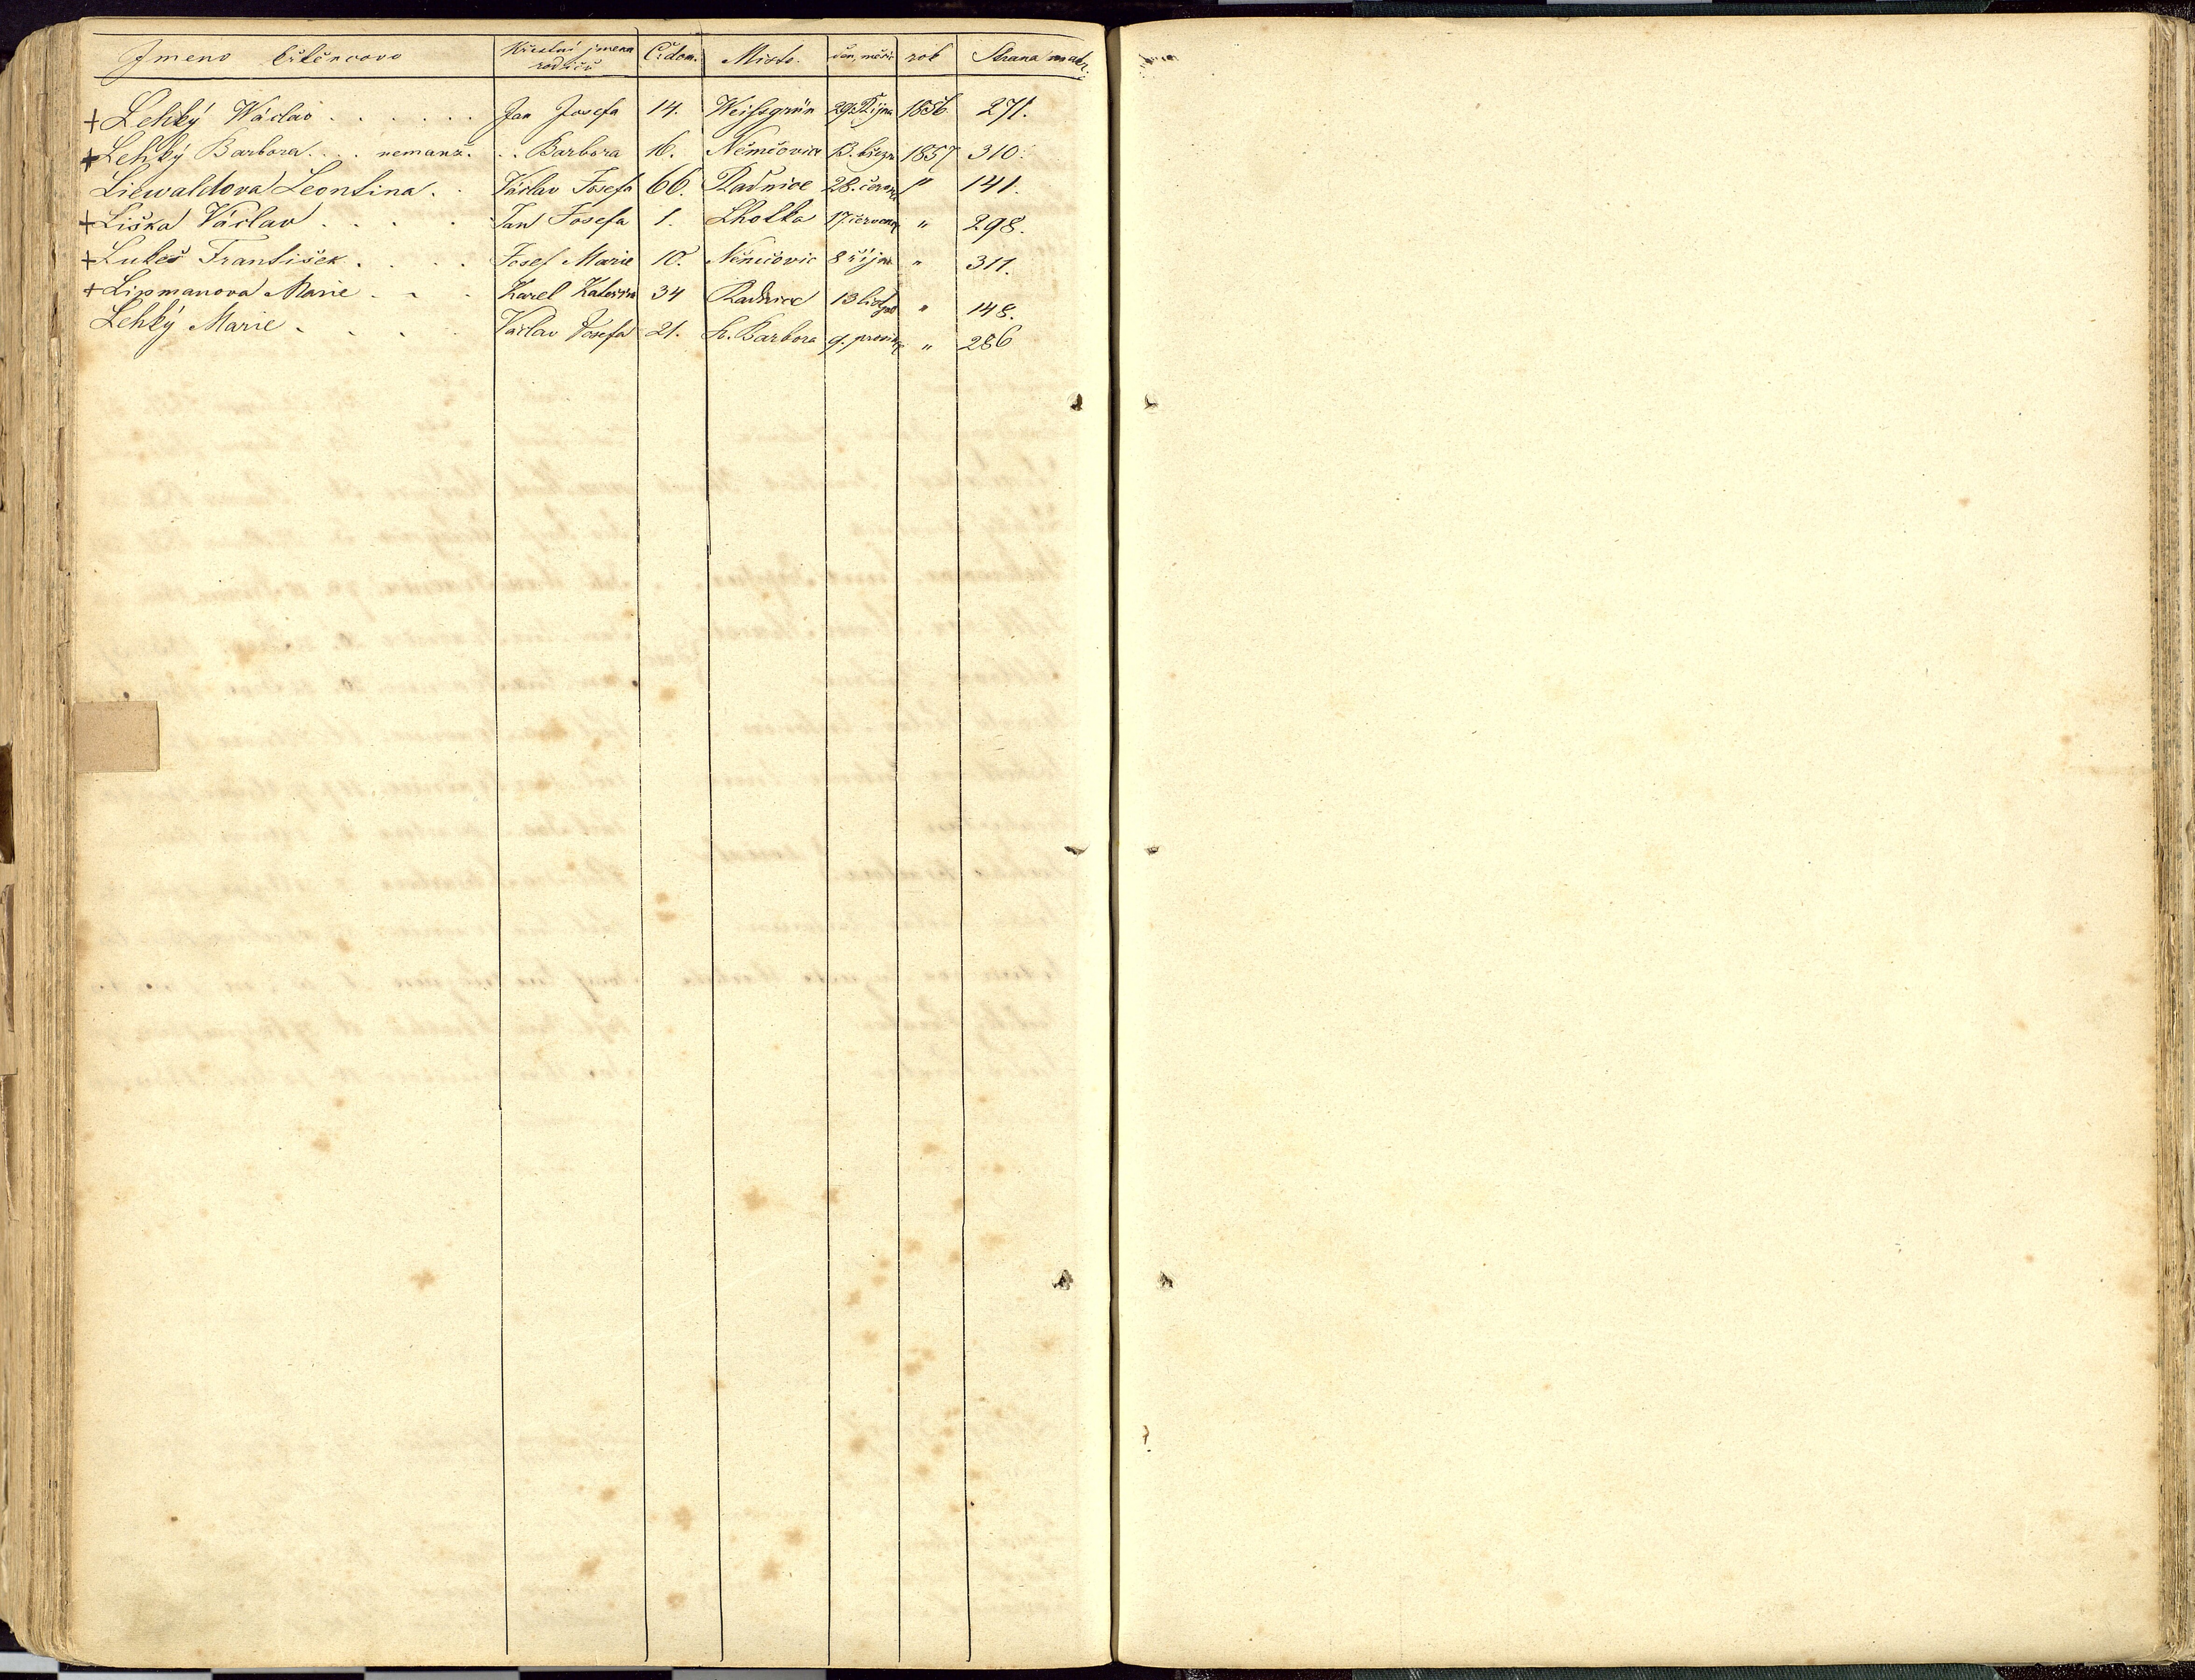 Jmeno křtěncovo Křestní jmena rodičů Č. dom. Misto. den, měsíc rok Strana matr.
+ Lehký Wáclav . . . . . . Jan Josefa 14. Weißgrün 29. Října 1856 271.
+ Lehký Barbora . . . nemanž. . . Barbora 16. Němčovice 13. březn 1857 310.
Liewaldova Leontina . . Václav Josefa 66. Radnice 28. června " 141.
+ Liška Václav . . . . Jan Josefa 1. Lhotka 17. července " 298.
+ Lukeš František . . . . Josef Marie 10. Němčovic 8 října " 311.
+ Lipmanova Marie . . . Karel Kateřina 34 Radnice 13 listopad " 148.
Lehký Marie . . . . Václav Josefa 21. S. Barbora 9. prosince " 286